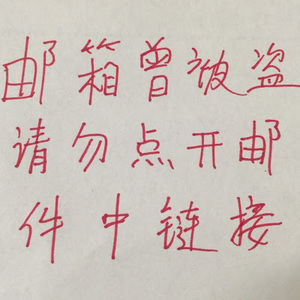 邮箱曾被盗
请勿点开邮
件中链接